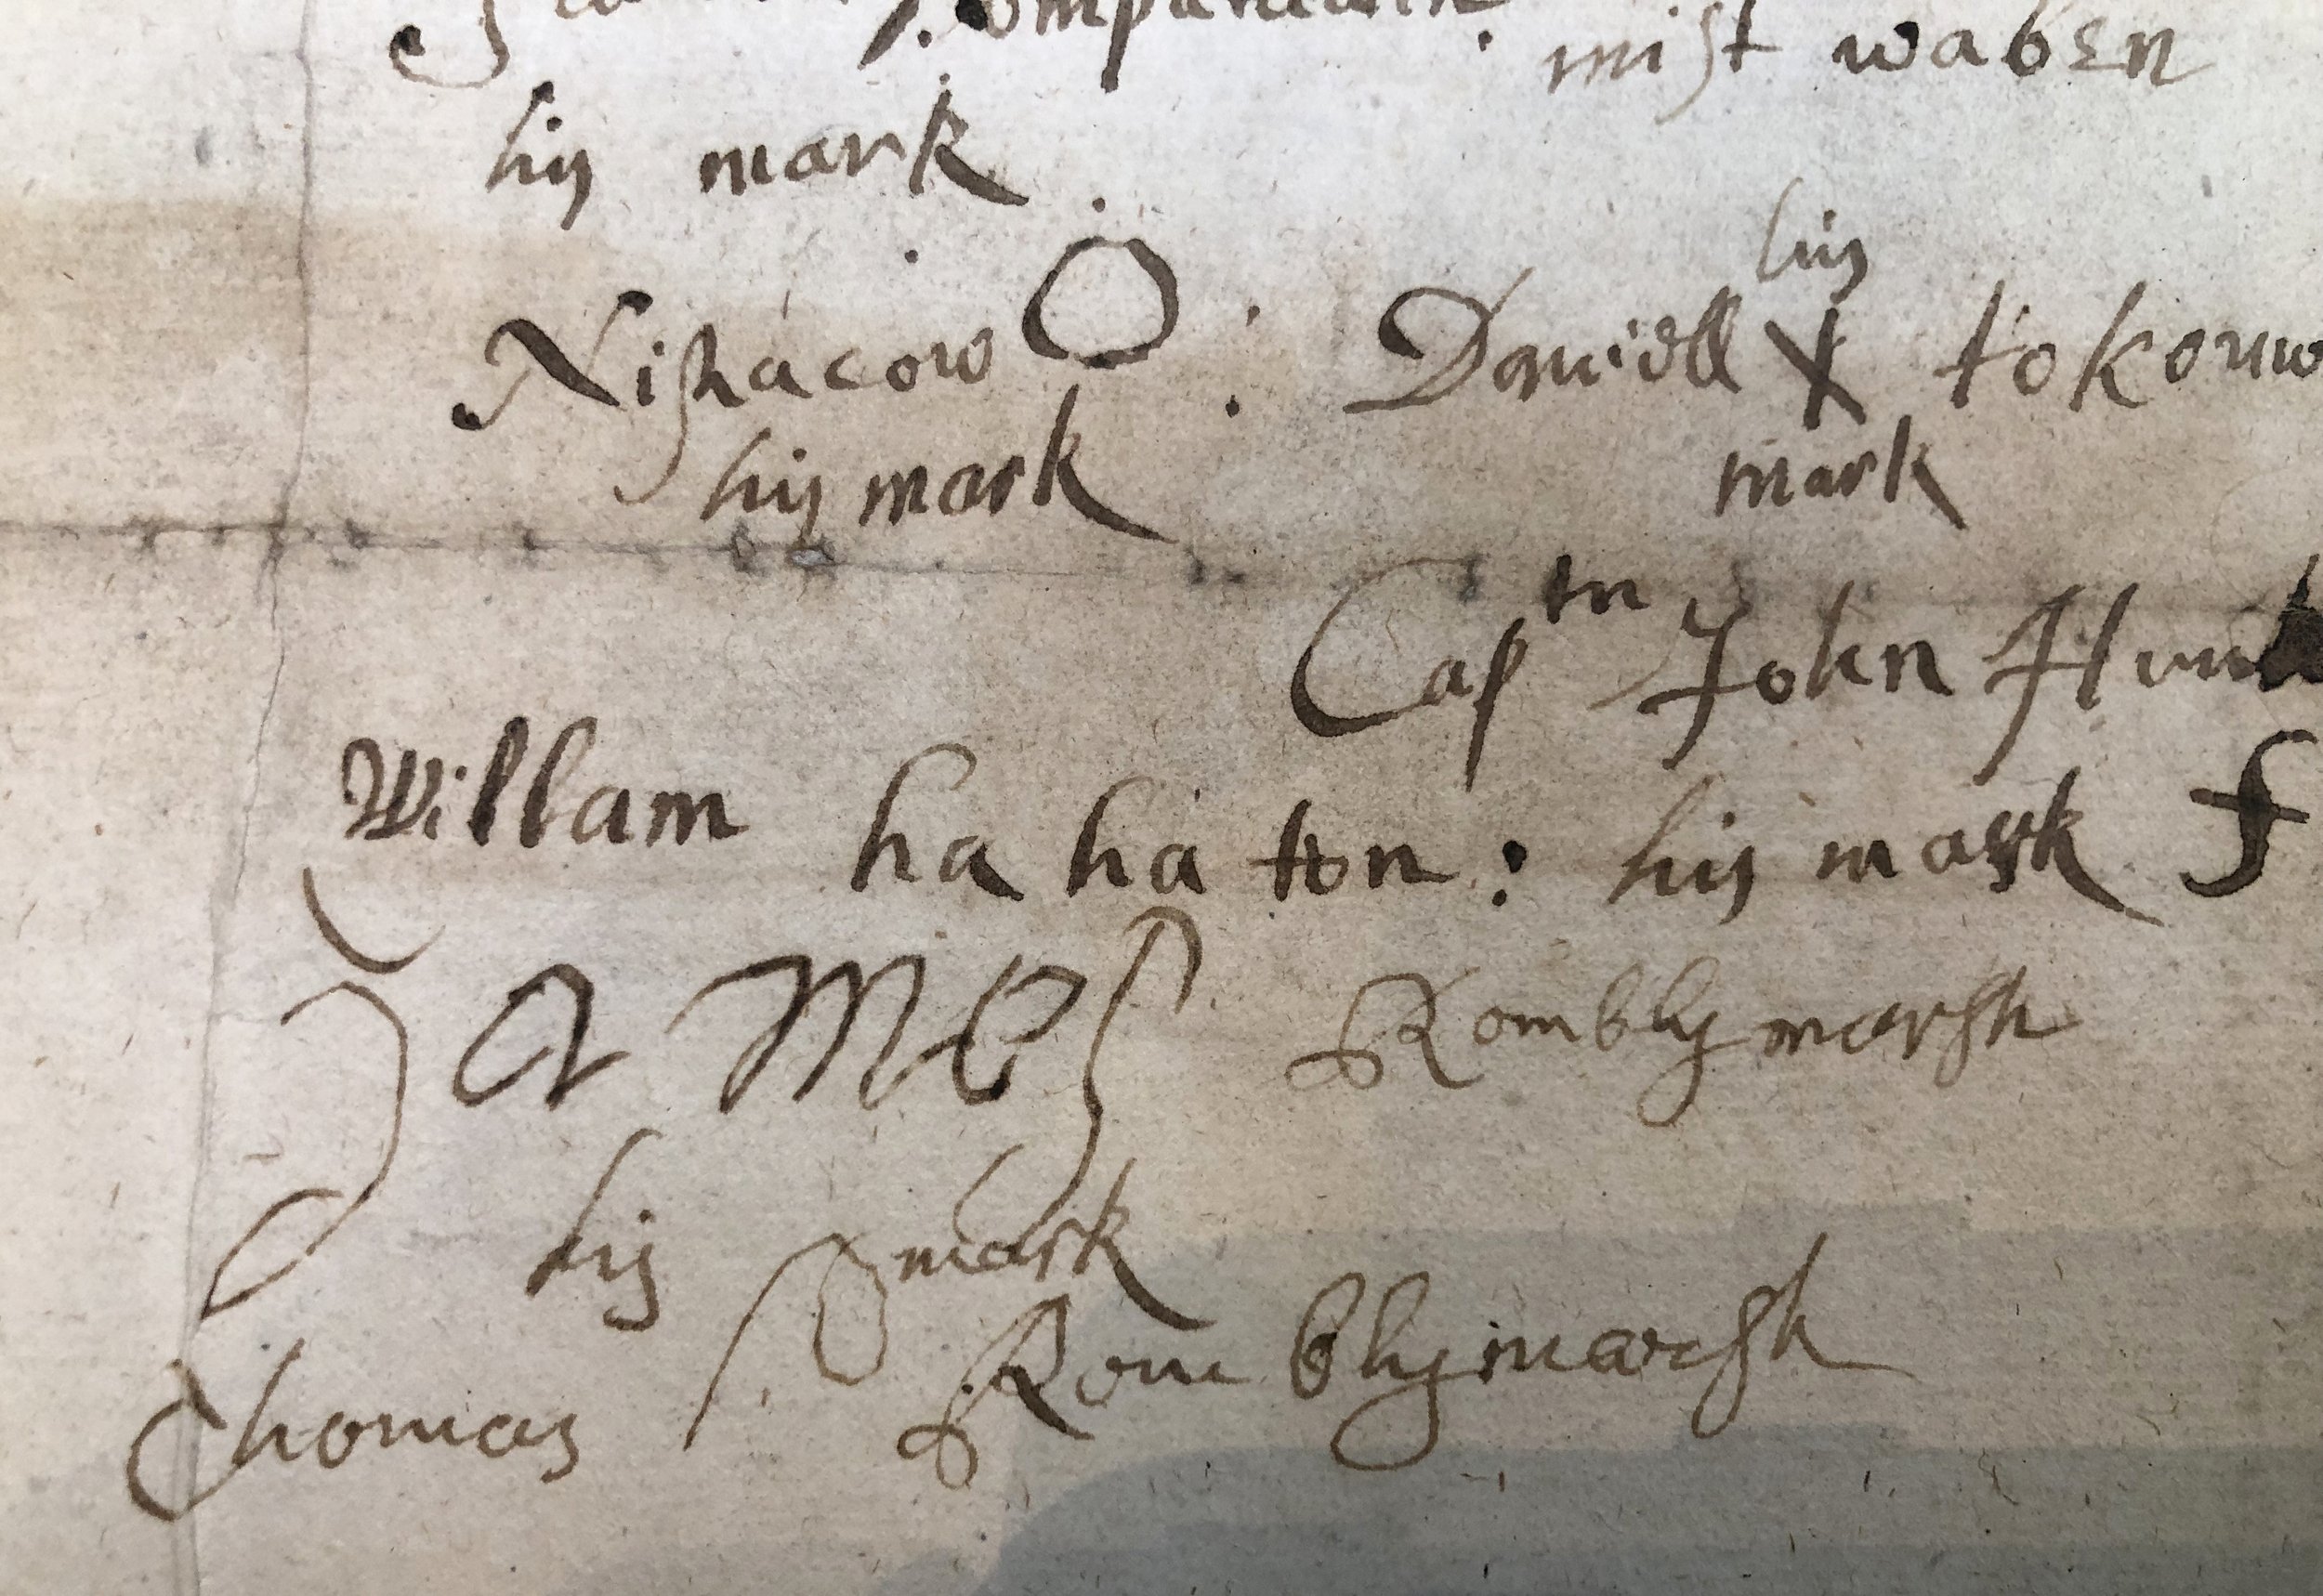 mist waben
his mark
his
Nishacow O : Daniell X tokouw
his mark mark
Cap tn John Hunt
Willam ha ha ton : his mark f
James Romblymarsh
his mark
Thomas Romblymarsh